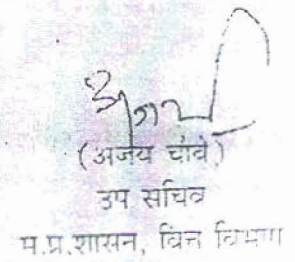 (अजय चौबे)
उप सचिव
म.प्र.शासन, वित्त विभाग